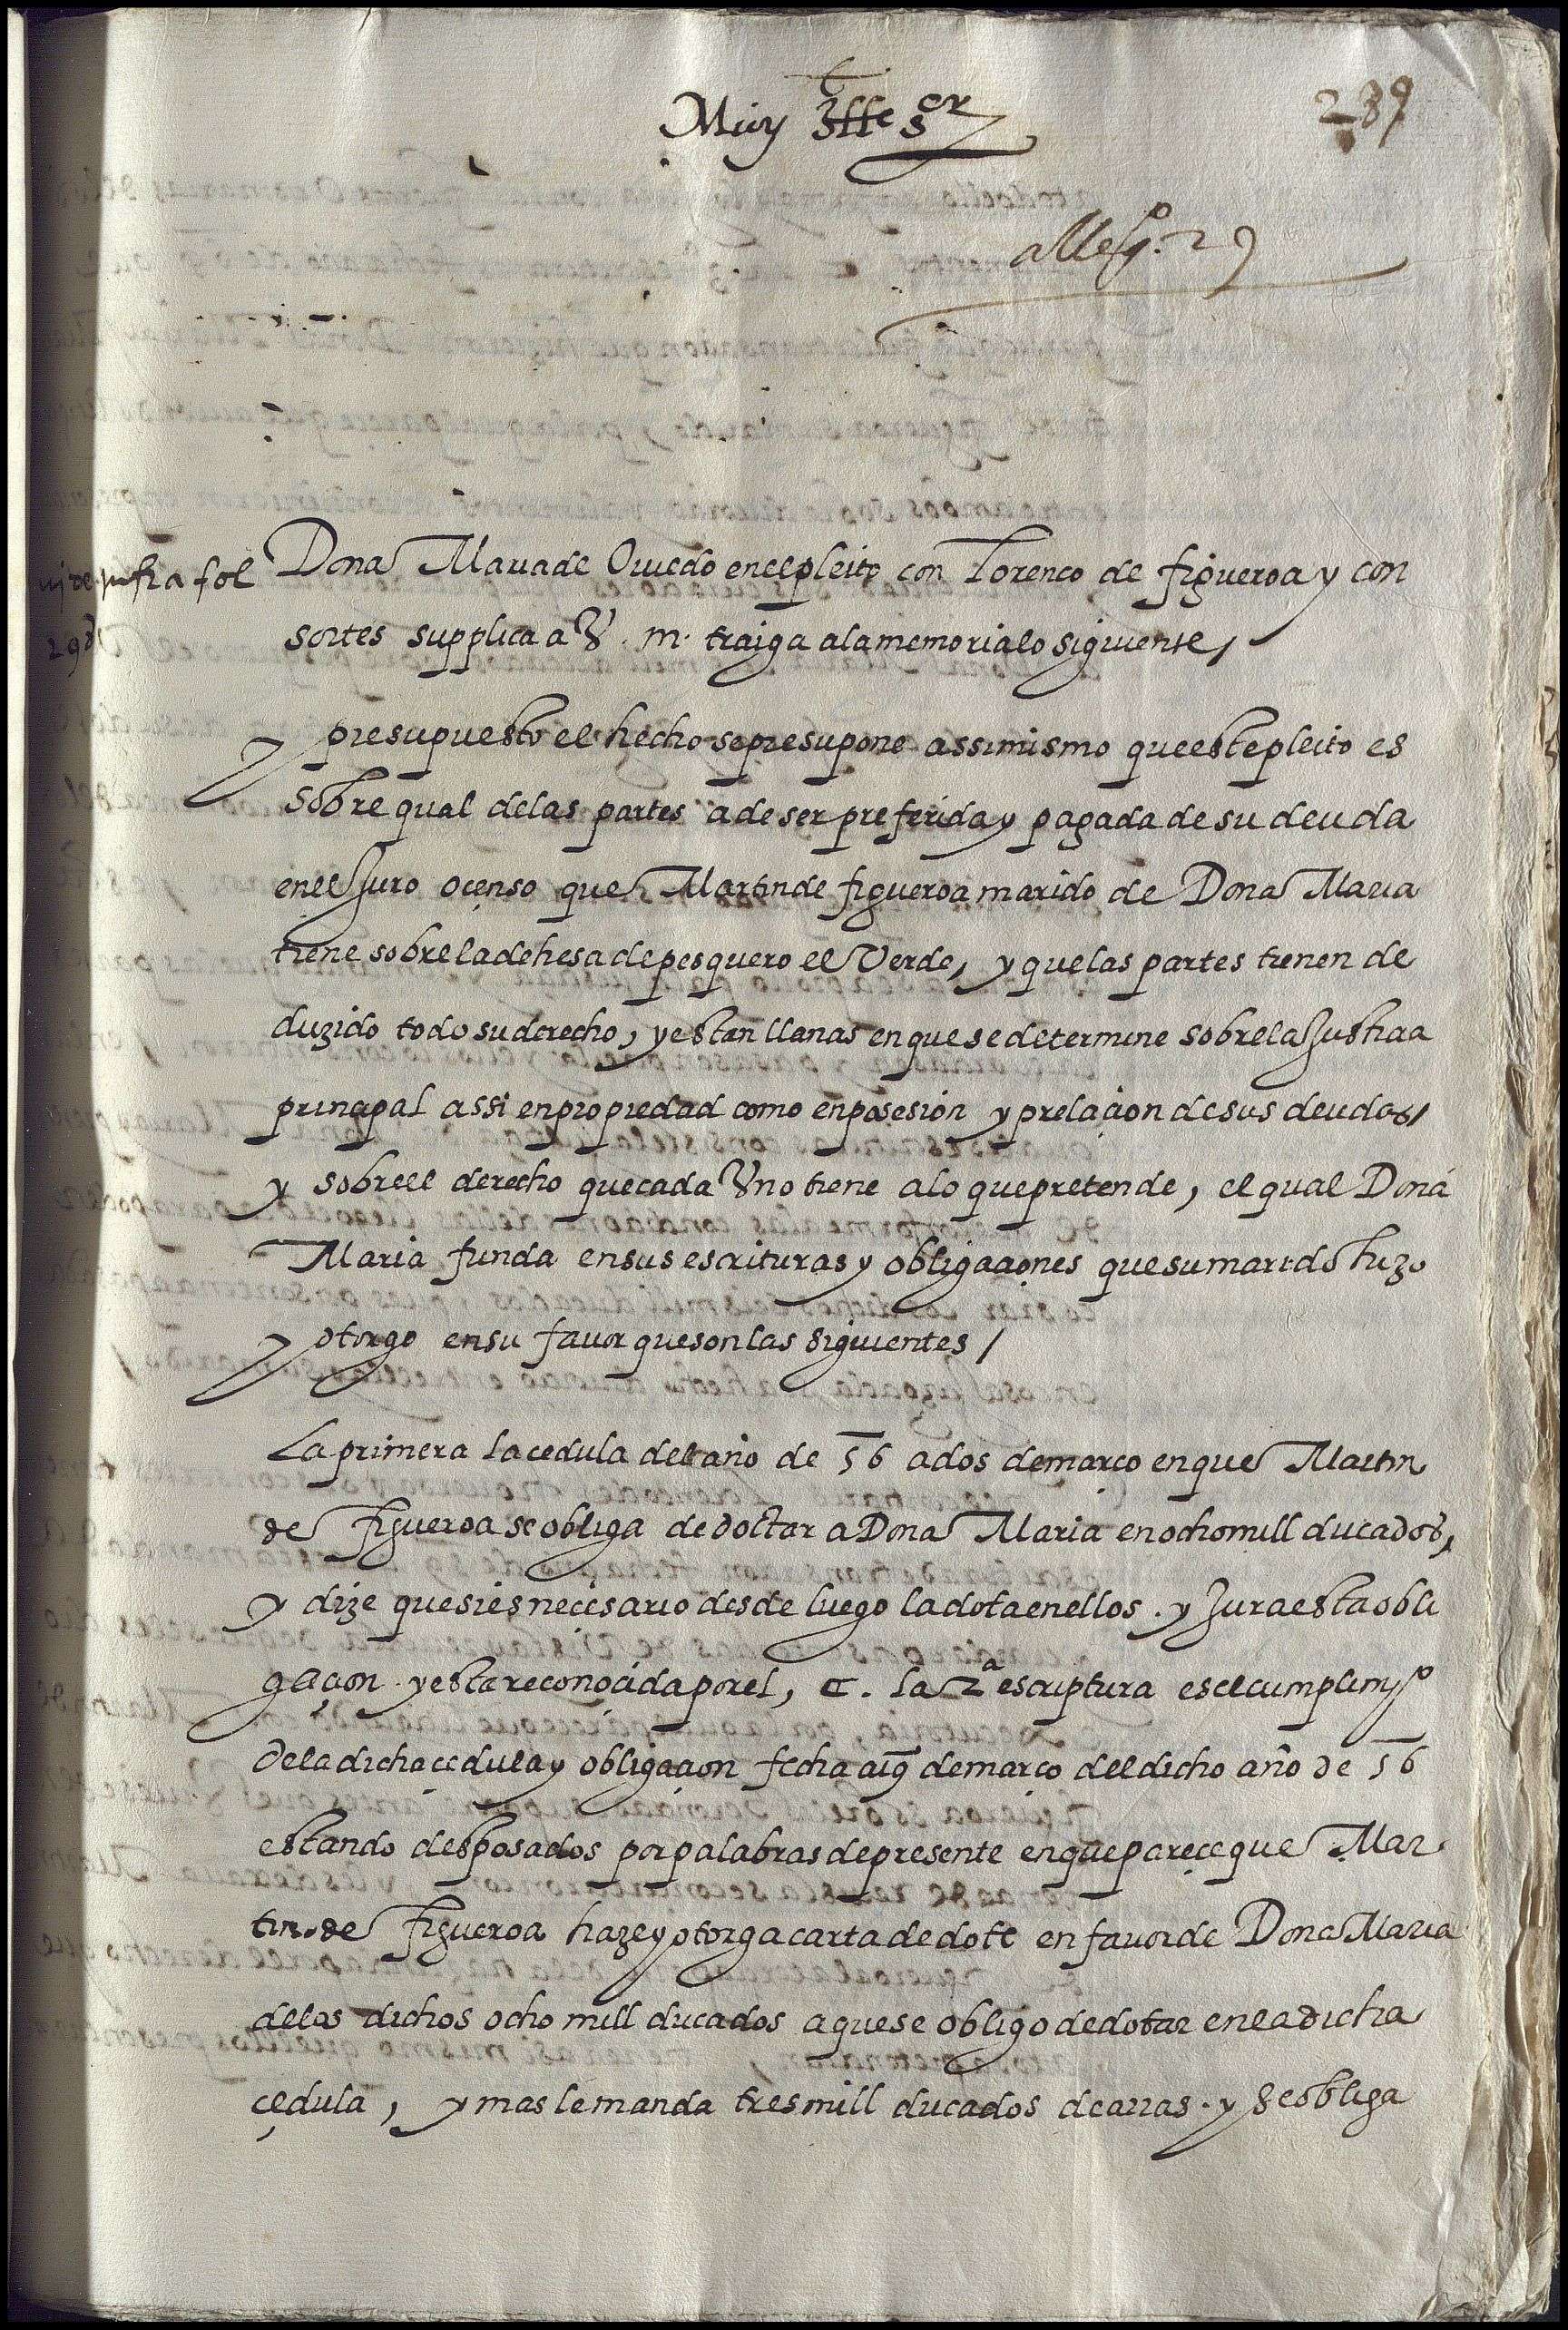 Muy Ille Sor
239
allegº. 29
vide infra fol
Dona Maria de Oviedo en el pleito con Lorenço de figueroa y con
sortes supplica a V. m. traiga a la memoria lo siguiente,
y presupuesto el hecho se presupone assimismo que este pleito es
sobre qual de las partes a de ser preferida y pagada de su deuda
en el Juro o çenso que Martin de figueroa marido de Dona Maria
tiene sobre la dehesa de pesquero el Verde, y que las partes tienen de
duzido todo su derecho, y estan llanas en que se determine sobre la Justicia
principal assi en propiedad como en posesion y prelaçion de sus deudas /
y sobre el derecho que cada Uno tiene a lo que pretende, el qual Dona
Maria funda en sus escrituras y obligaçiones que su marido hizo
y otorgo en su favor que son las siguientes /
La primera la cedula del año de 56 a dos de março en que Martin
de Figueroa se obliga de doctar a Dona Maria en ocho mill ducados,
y dize que si es neçesario desde luego la dota en ellos . y Jura esta obli
gaçion . y esta reconocida por el, C. la 2ª escriptura es el cumplimyº
de la dicha cedula y obligaçion fecha a 19 de março del dicho año de 56
estando desposados por palabras de presente en que pareçe que Mar
tin de Figueroa haze y otorga carta de dote en favor de Dona Maria
de los dichos ocho mill ducados a que se obligo de dotar en la dicha
çedula, y mas le manda tres mill ducados de arras . y se obliga